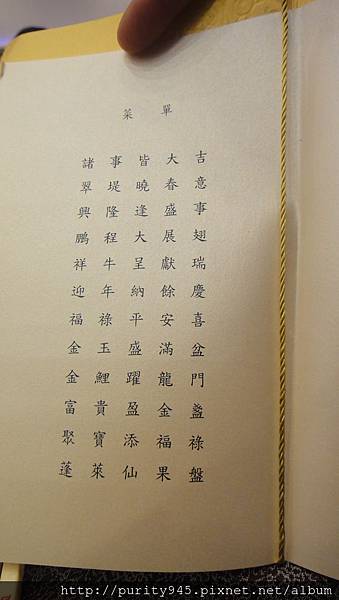 菜單
諸事皆大吉
翠堤曉春意
興隆逢盛事
鵬程大展翅
祥牛呈獻瑞
迎年納餘慶
福祿平安喜
金玉盛滿盆
金鯉躍龍門
富貴盈金盞
聚寶添福祿
蓬萊仙果盤
http://purity945.pixnet.net/album